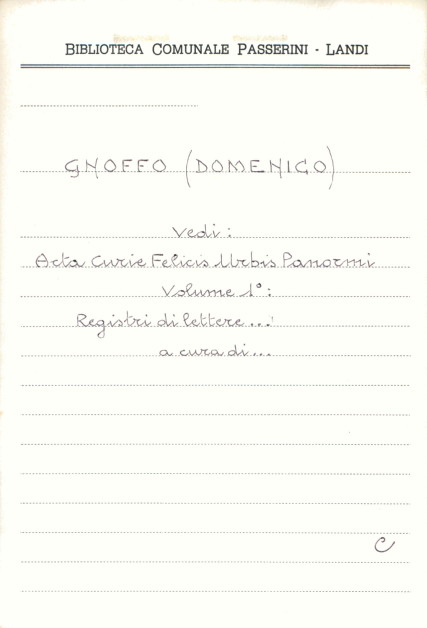 BIBLIOTECA COMUNALE PASSERINI - LANDI
GNOFFO (DOMENICO)
Vedi:
Acta Curie Felicis Urbis Panormi
Volume 1°:
Registri di lettere...
a cura di...
C